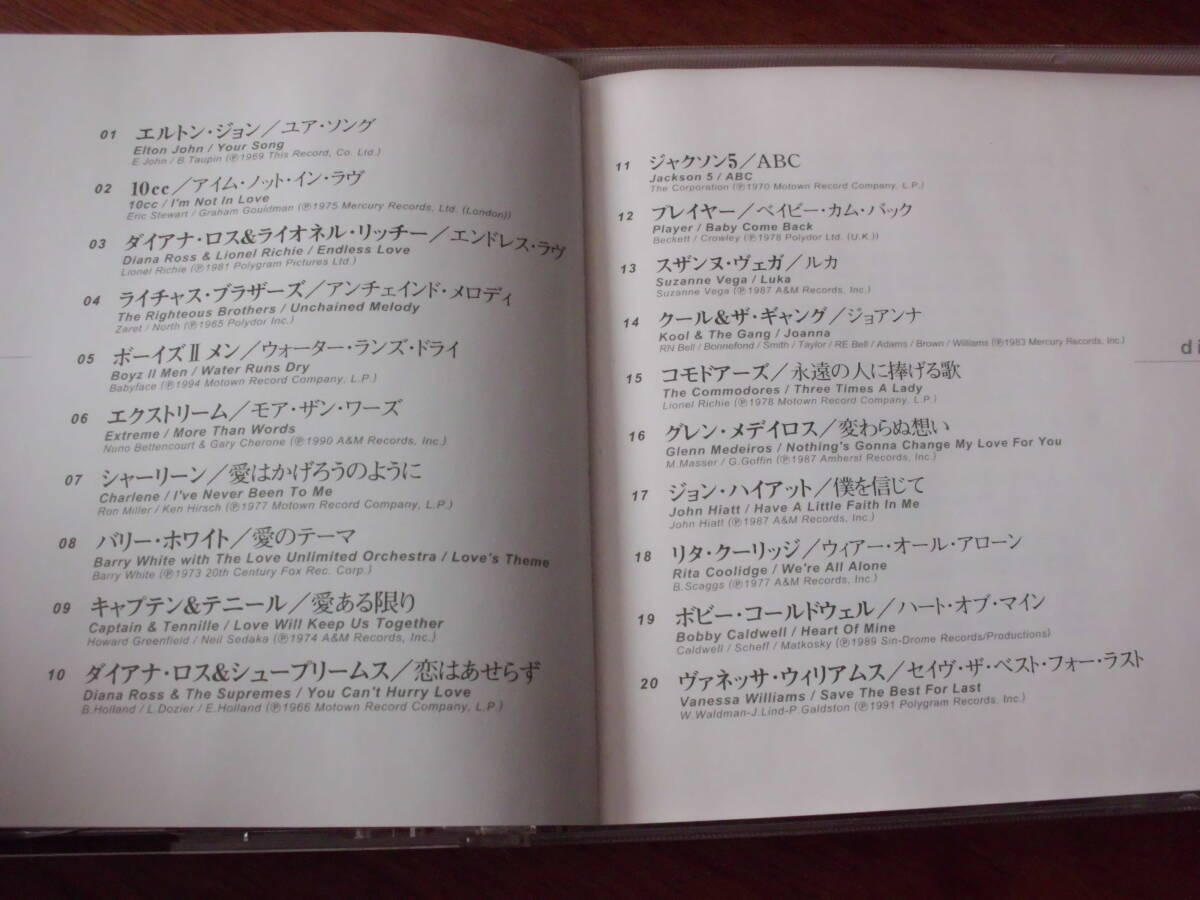 01 エルトン・ジョン／ユア・ソング
Elton John / Your Song
E.John / B.Taupin (℗1969 This Record, Co. Ltd.)
02 10cc／アイム・ノット・イン・ラヴ
10cc / I'm Not In Love
Eric Stewart / Graham Gouldman (℗1975 Mercury Records, Ltd. (London))
03 ダイアナ・ロス&ライオネル・リッチー／エンドレス・ラヴ
Diana Ross & Lionel Richie / Endless Love
Lionel Richie (℗1981 Polygram Pictures Ltd.)
04 ライチャス・ブラザーズ／アンチェインド・メロディ
The Righteous Brothers / Unchained Melody
Zaret / North (℗1965 Polydor Inc.)
05 ボーイズⅡメン／ウォーター・ランズ・ドライ
Boyz II Men / Water Runs Dry
Babyface (℗1994 Motown Record Company, L.P.)
06 エクストリーム／モア・ザン・ワーズ
Extreme / More Than Words
Nuno Bettencourt & Gary Cherone (℗1990 A&M Records, Inc.)
07 シャーリーン／愛はかげろうのように
Charlene / I've Never Been To Me
Ron Miller / Ken Hirsch (℗1977 Motown Record Company, L.P.)
08 バリー・ホワイト／愛のテーマ
Barry White with The Love Unlimited Orchestra / Love's Theme
Barry White (℗1973 20th Century Fox Rec. Corp.)
09 キャプテン&テニール／愛ある限り
Captain & Tennille / Love Will Keep Us Together
Howard Greenfield / Neil Sedaka (℗1974 A&M Records, Inc.)
10 ダイアナ・ロス&シュープリームス／恋はあせらず
Diana Ross & The Supremes / You Can't Hurry Love
B.Holland / L.Dozier / E.Holland (℗1966 Motown Record Company, L.P.)
11 ジャクソン5／ABC
Jackson 5 / ABC
The Corporation (℗1970 Motown Record Company, L.P.)
12 プレイヤー／ベイビー・カム・バック
Player / Baby Come Back
Beckett / Crowley (℗1978 Polydor Ltd. (U.K.))
13 スザンヌ・ヴェガ／ルカ
Suzanne Vega / Luka
Suzanne Vega (℗1987 A&M Records, Inc.)
14 クール&ザ・ギャング／ジョアンナ
Kool & The Gang / Joanna
RN Bell / Bonnefond / Smith / Taylor / RE Bell / Adams / Brown / Williams (℗1983 Mercury Records, Inc.)
15 コモドアーズ／永遠の人に捧げる歌
The Commodores / Three Times A Lady
Lionel Richie (℗1978 Motown Record Company, L.P.)
16 グレン・メデイロス／変わらぬ想い
Glenn Medeiros / Nothing's Gonna Change My Love For You
M.Masser / G.Goffin (℗1987 Amherst Records, Inc.)
17 ジョン・ハイアット／僕を信じて
John Hiatt / Have A Little Faith In Me
John Hiatt (℗1987 A&M Records, Inc.)
18 リタ・クーリッジ／ウィアー・オール・アローン
Rita Coolidge / We're All Alone
B.Scaggs (℗1977 A&M Records, Inc.)
19 ボビー・コールドウェル／ハート・オブ・マイン
Bobby Caldwell / Heart Of Mine
Caldwell / Scheff / Matkosky (℗1989 Sin-Drome Records/Productions)
20 ヴァネッサ・ウィリアムス／セイヴ・ザ・ベスト・フォー・ラスト
Vanessa Williams / Save The Best For Last
W.Waldman-J.Lind-P.Galdston (℗1991 Polygram Records, Inc.)
di